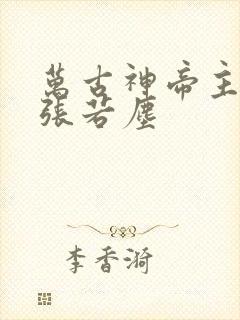 萬古神帝主
張若塵
李香漪